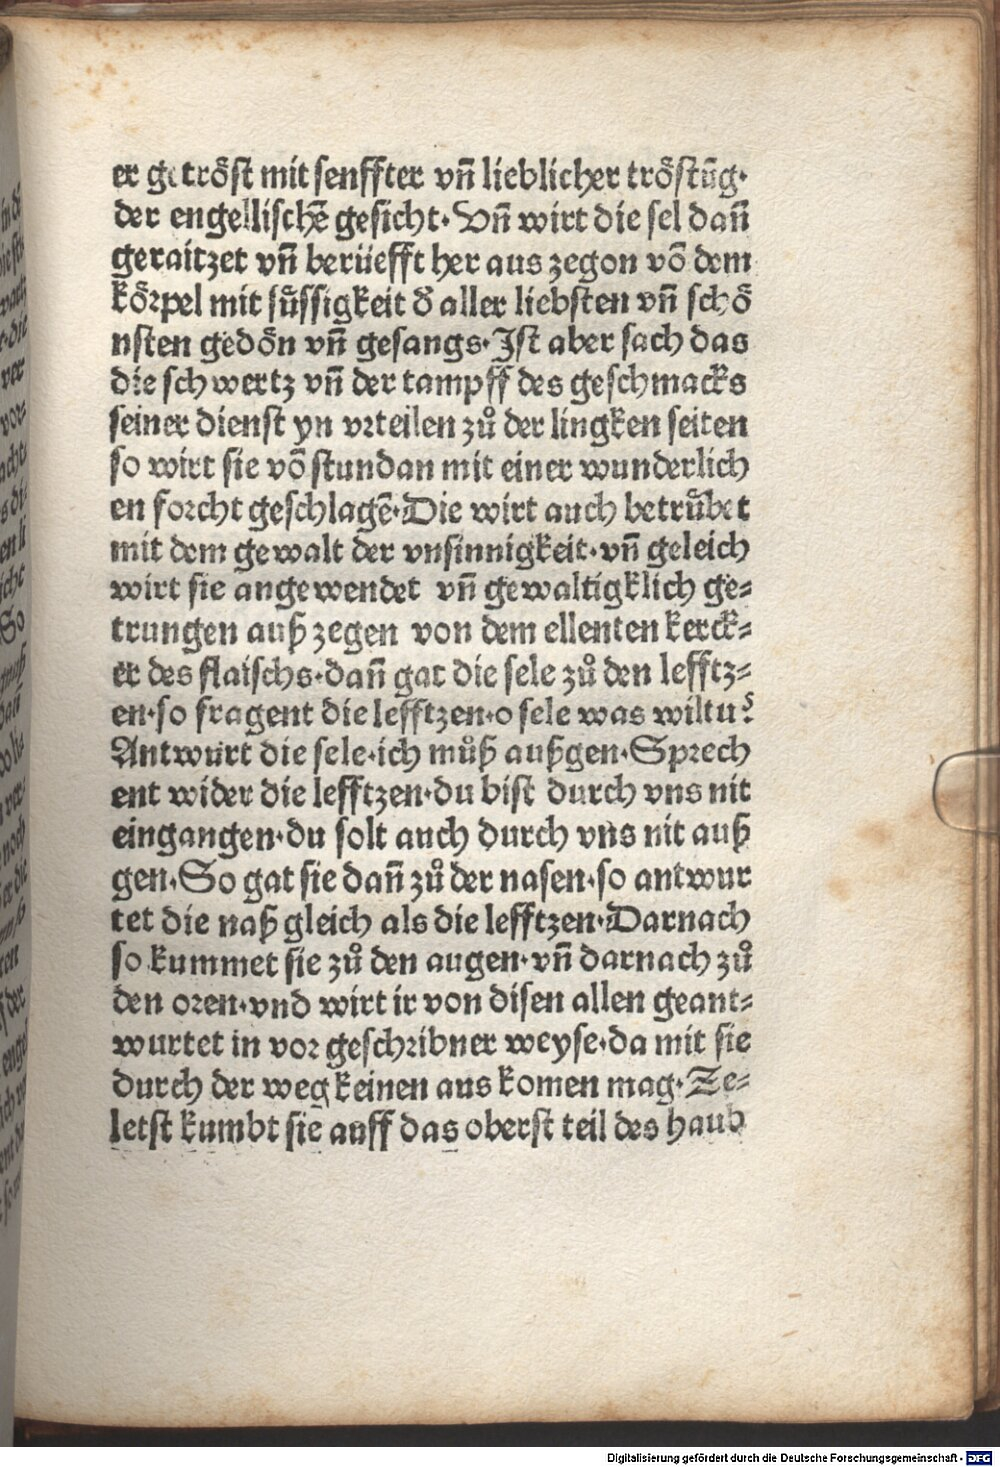 er getröst mit senffter vn̄ lieblicher tröstūg·
der engellischē gesicht· Vn̄ wirt die sel dan̄
geraitzet vn̄ berüefft her aus zegon võ dem
körpel mit sůssigkeit đ aller liebsten vn̄ schö
nsten gedön vn̄ gesangs· Ist aber sach das
die schwertz vn̄ der tampff des geschmacks
seiner dienst yn vrteilen zů der lingken seiten
so wirt sie võ stundan mit einer wunderlich
en forcht geschlagē· Die wirt auch betrůbet
mit dem gewalt der vnsinnigkeit· vn̄ geleich
wirt sie angewendet vn̄ gewaltigklich ge⸗
trungen auß zegen von dem ellenten kerck⸗
er des flaischs· dan̄ gat die sele zů den lefftz⸗
en· so fragent die lefftzen· o sele was wiltu?
Antwurt die sele· ich můß außgen· Sprech
ent wider die lefftzen· du bist durch vns nit
eingangen· du solt auch durch vns nit auß
gen· So gat sie dan̄ zů der nasen· so antwur
tet die naß gleich als die lefftzen· Darnach
so kummet sie zů den augen· vn̄ darnach zů
den oren· vnd wirt ir von disen allen geant⸗
wurtet in vor geschribner weyse· da mit sie
durch der weg keinen aus komen mag· Ze⸗
letst kumbt sie auff das oberst teil des haub
Digitalisierung gefördert durch die Deutsche Forschungsgemeinschaft - DFG